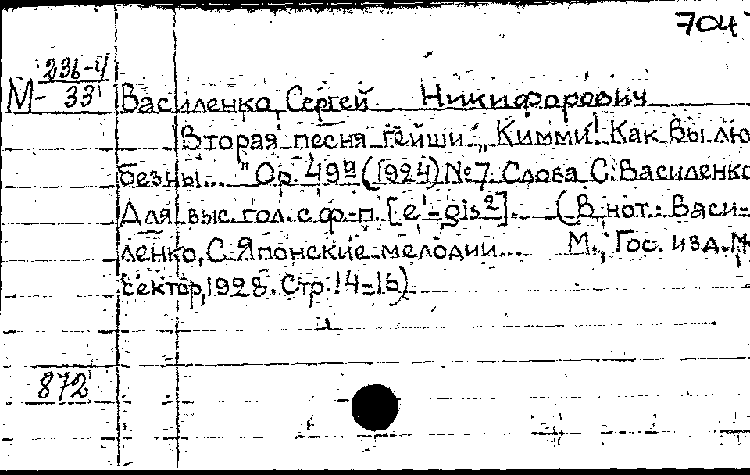 704
236-4
М- 33
Василенко, Сергей Никифорович
Вторая песня гейши „Кимми! Как Вы лю
безны... " Ор. 49а (1924) №7. Слова С. Василенко
Для выс. гол. с ф.-п. [e¹-gis²]. (В нот.: Васи-
ленко, С. Японские мелодии... М., Гос. изд. М
сектор, 1928. Стр. 14-16)
872